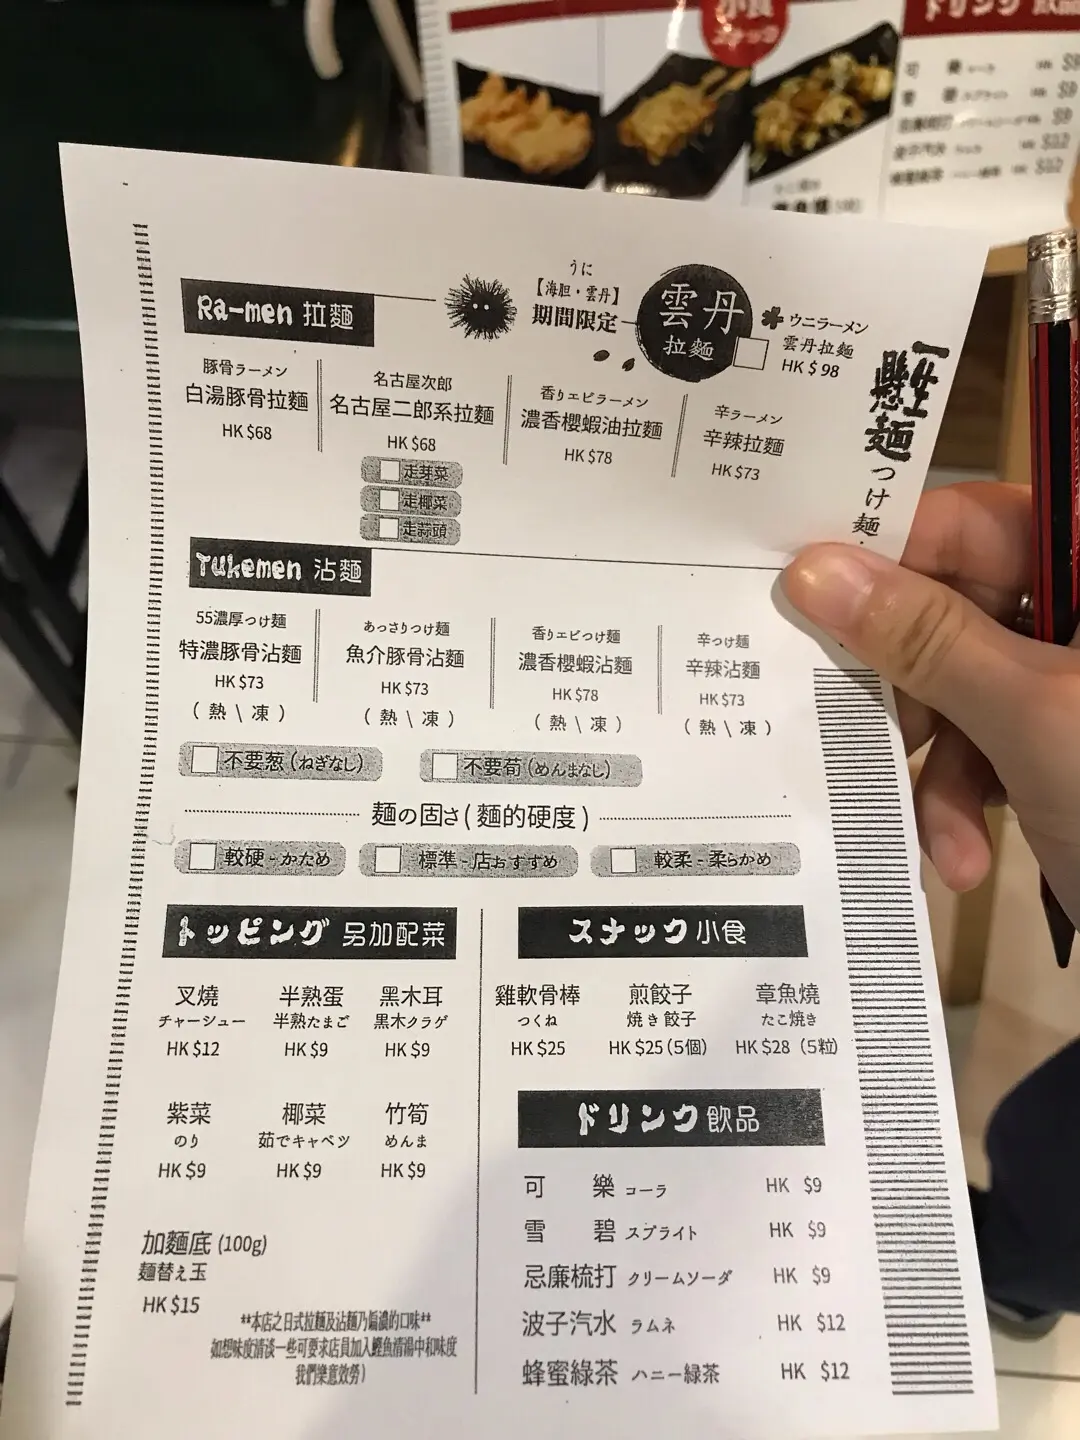 小食
スナック
ドリンク 飲品
Ra-men 拉麵
うに
【海胆・雲丹】
期間限定
雲丹
拉麵
ウニラーメン
雲丹拉麵
HK $ 98
一生
懸麺
つけ麺
豚骨ラーメン
白湯豚骨拉麵
HK $68
名古屋次郎
名古屋二郎系拉麵
HK $68
走芽菜
走椰菜
走蒜頭
香りエビラーメン
濃香櫻蝦油拉麵
HK $78
辛ラーメン
辛辣拉麵
HK $73
Tukemen 沾麵
55濃厚つけ麺
特濃豚骨沾麵
HK $73
( 熱 \ 凍 )
あっさりつけ麺
魚介豚骨沾麵
HK $73
( 熱 \ 凍 )
香りエビつけ麺
濃香櫻蝦沾麵
HK $78
( 熱 \ 凍 )
辛つけ麺
辛辣沾麵
HK $73
( 熱 \ 凍 )
不要葱 (ねぎなし)
不要荀 (めんまなし)
麺の固さ( 麵的硬度 )
較硬 - かため
標準 - 店おすすめ
較柔 - 柔らかめ
トッピング 另加配菜
叉燒
チャーシュー
HK $12
半熟蛋
半熟たまご
HK $9
黑木耳
黒木クラゲ
HK $9
紫菜
のり
HK $9
椰菜
茹でキャベツ
HK $9
竹筍
めんま
HK $9
加麵底 (100g)
麺替え玉
HK $15
**本店之日式拉麵及沾麵乃偏濃的口味**
如想味度清淡一些可要求店員加入鰹魚清湯中和味度
我們樂意效勞)
スナック 小食
雞軟骨棒
つくね
HK $25
煎餃子
焼き餃子
HK $25 (5個)
章魚燒
たこ焼き
HK $28 (5粒)
ドリンク 飲品
可樂 コーラ HK $9
雪碧 スプライト HK $9
忌廉梳打 クリームソーダ HK $9
波子汽水 ラムネ HK $12
蜂蜜綠茶 ハニー緑茶 HK $12